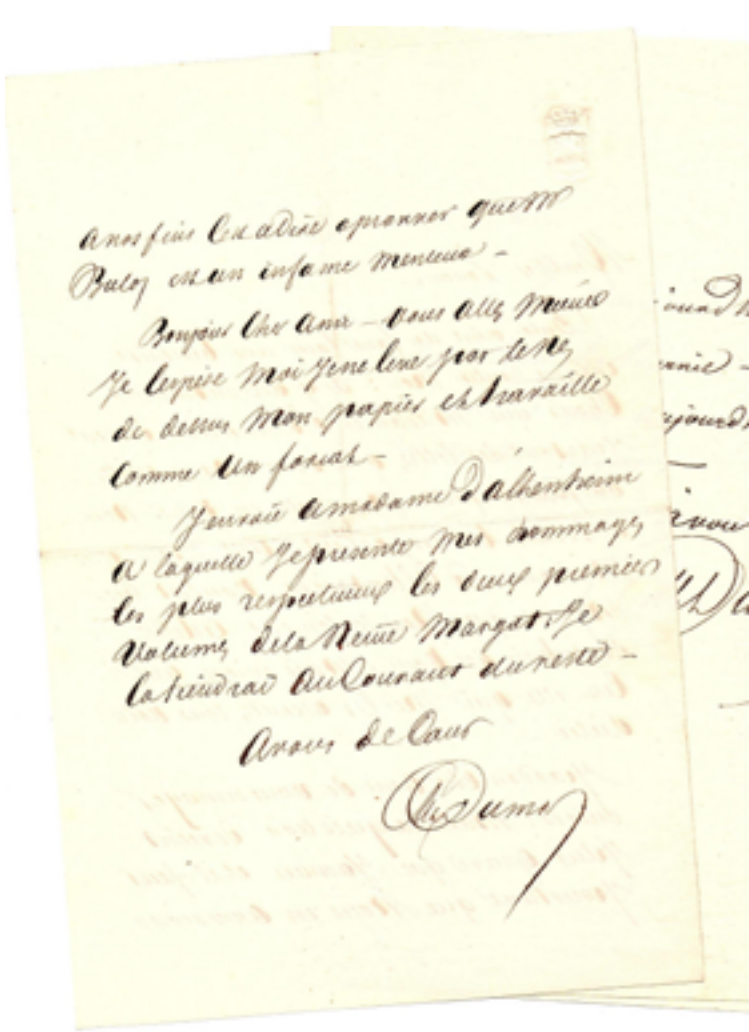 a nos fins C'est a dire a prouver que Mr
Buloz est un infame menteur –
Bonjour Cher Ami – vous allez mieux
Je l'espère Moi Je ne leve pas le Nez
de dessus Mon papier et travaille
Comme Un forcat –
J'envoie a madame D'altenheim
a laquelle Je presente mes hommages
les plus respectueux les deux premiers
Volumes de la Reine Margot. Je
la tiendrai Au Courant du reste –
A vous de Cœur
Alex Dumas
ourd
ujourd
vous